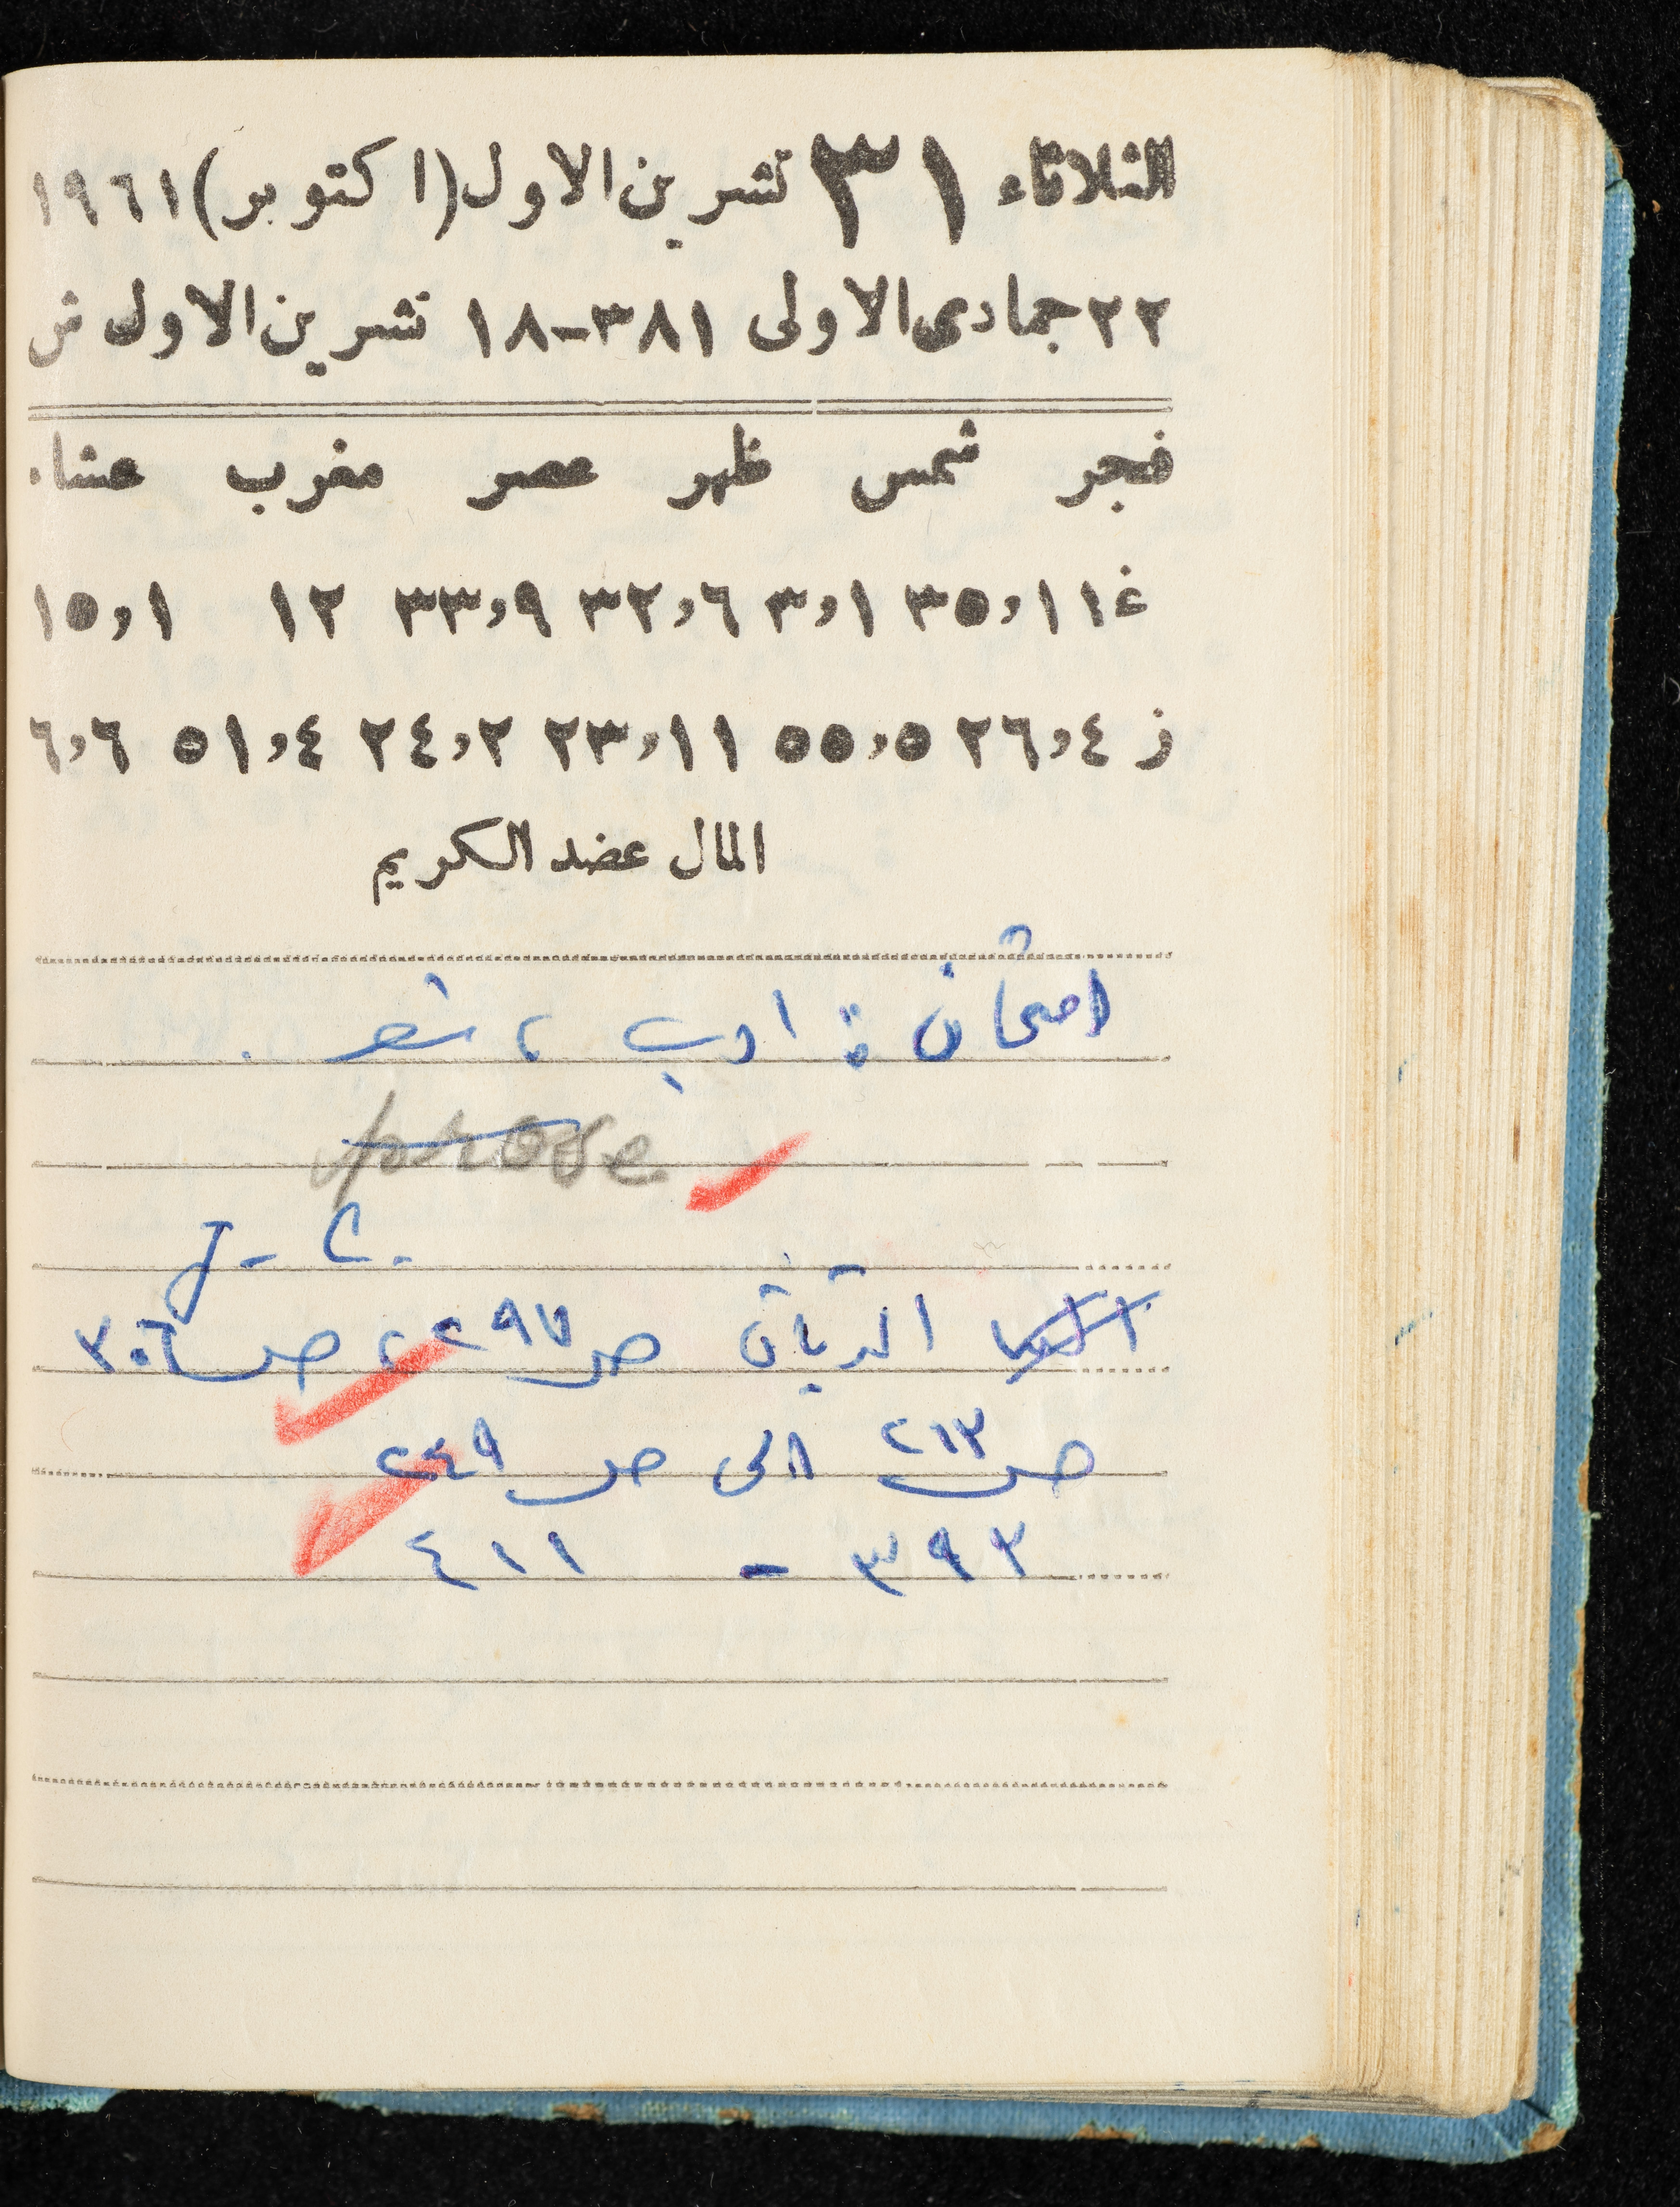 الثلاثاء ٣١ تشرين الاول (اكتوبر) ١٩٦١
٢٢ جمادى الاولى ٣٨١-١٨ تشرين الاول ش
فجر شمس ظهر عصر مغرب عشاء
غ ١١،٣٥ ١،٣ ٦،٣٢ ٩،٣٣ ١٢ ١،١٥
ز ٤،٢٦ ٥،٥٥ ١١،٢٣ ٢،٢٤ ٤،٥١ ٦،٦
المال عضد الكريم
امتحان : ادب ، شعر .
prose
J - C -
الترياق ص ٢٩٧ ، ص ٣٠٦
ص ٢١٣ الى ص ٢٤٩
٣٩٣ - ٤١١